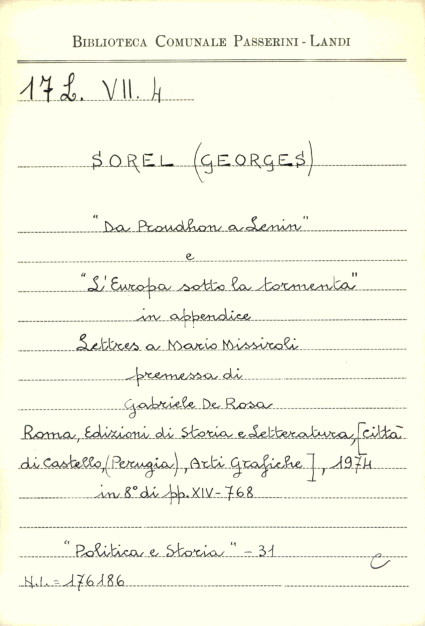 BIBLIOTECA COMUNALE PASSERINI - LANDI
17 L. VII. 4
SOREL (GEORGES)
"Da Proudhon a Lenin"
e
"L'Europa sotto la tormenta"
in appendice
Lettres a Mario Missiroli
premessa di
Gabriele De Rosa
Roma, Edizioni di Storia e Letteratura, [Città
di Castello, (Perugia), Arti Grafiche], 1974
in 8° di pp. XIV - 768
"Politica e Storia" - 31
C
N.I. = 176186